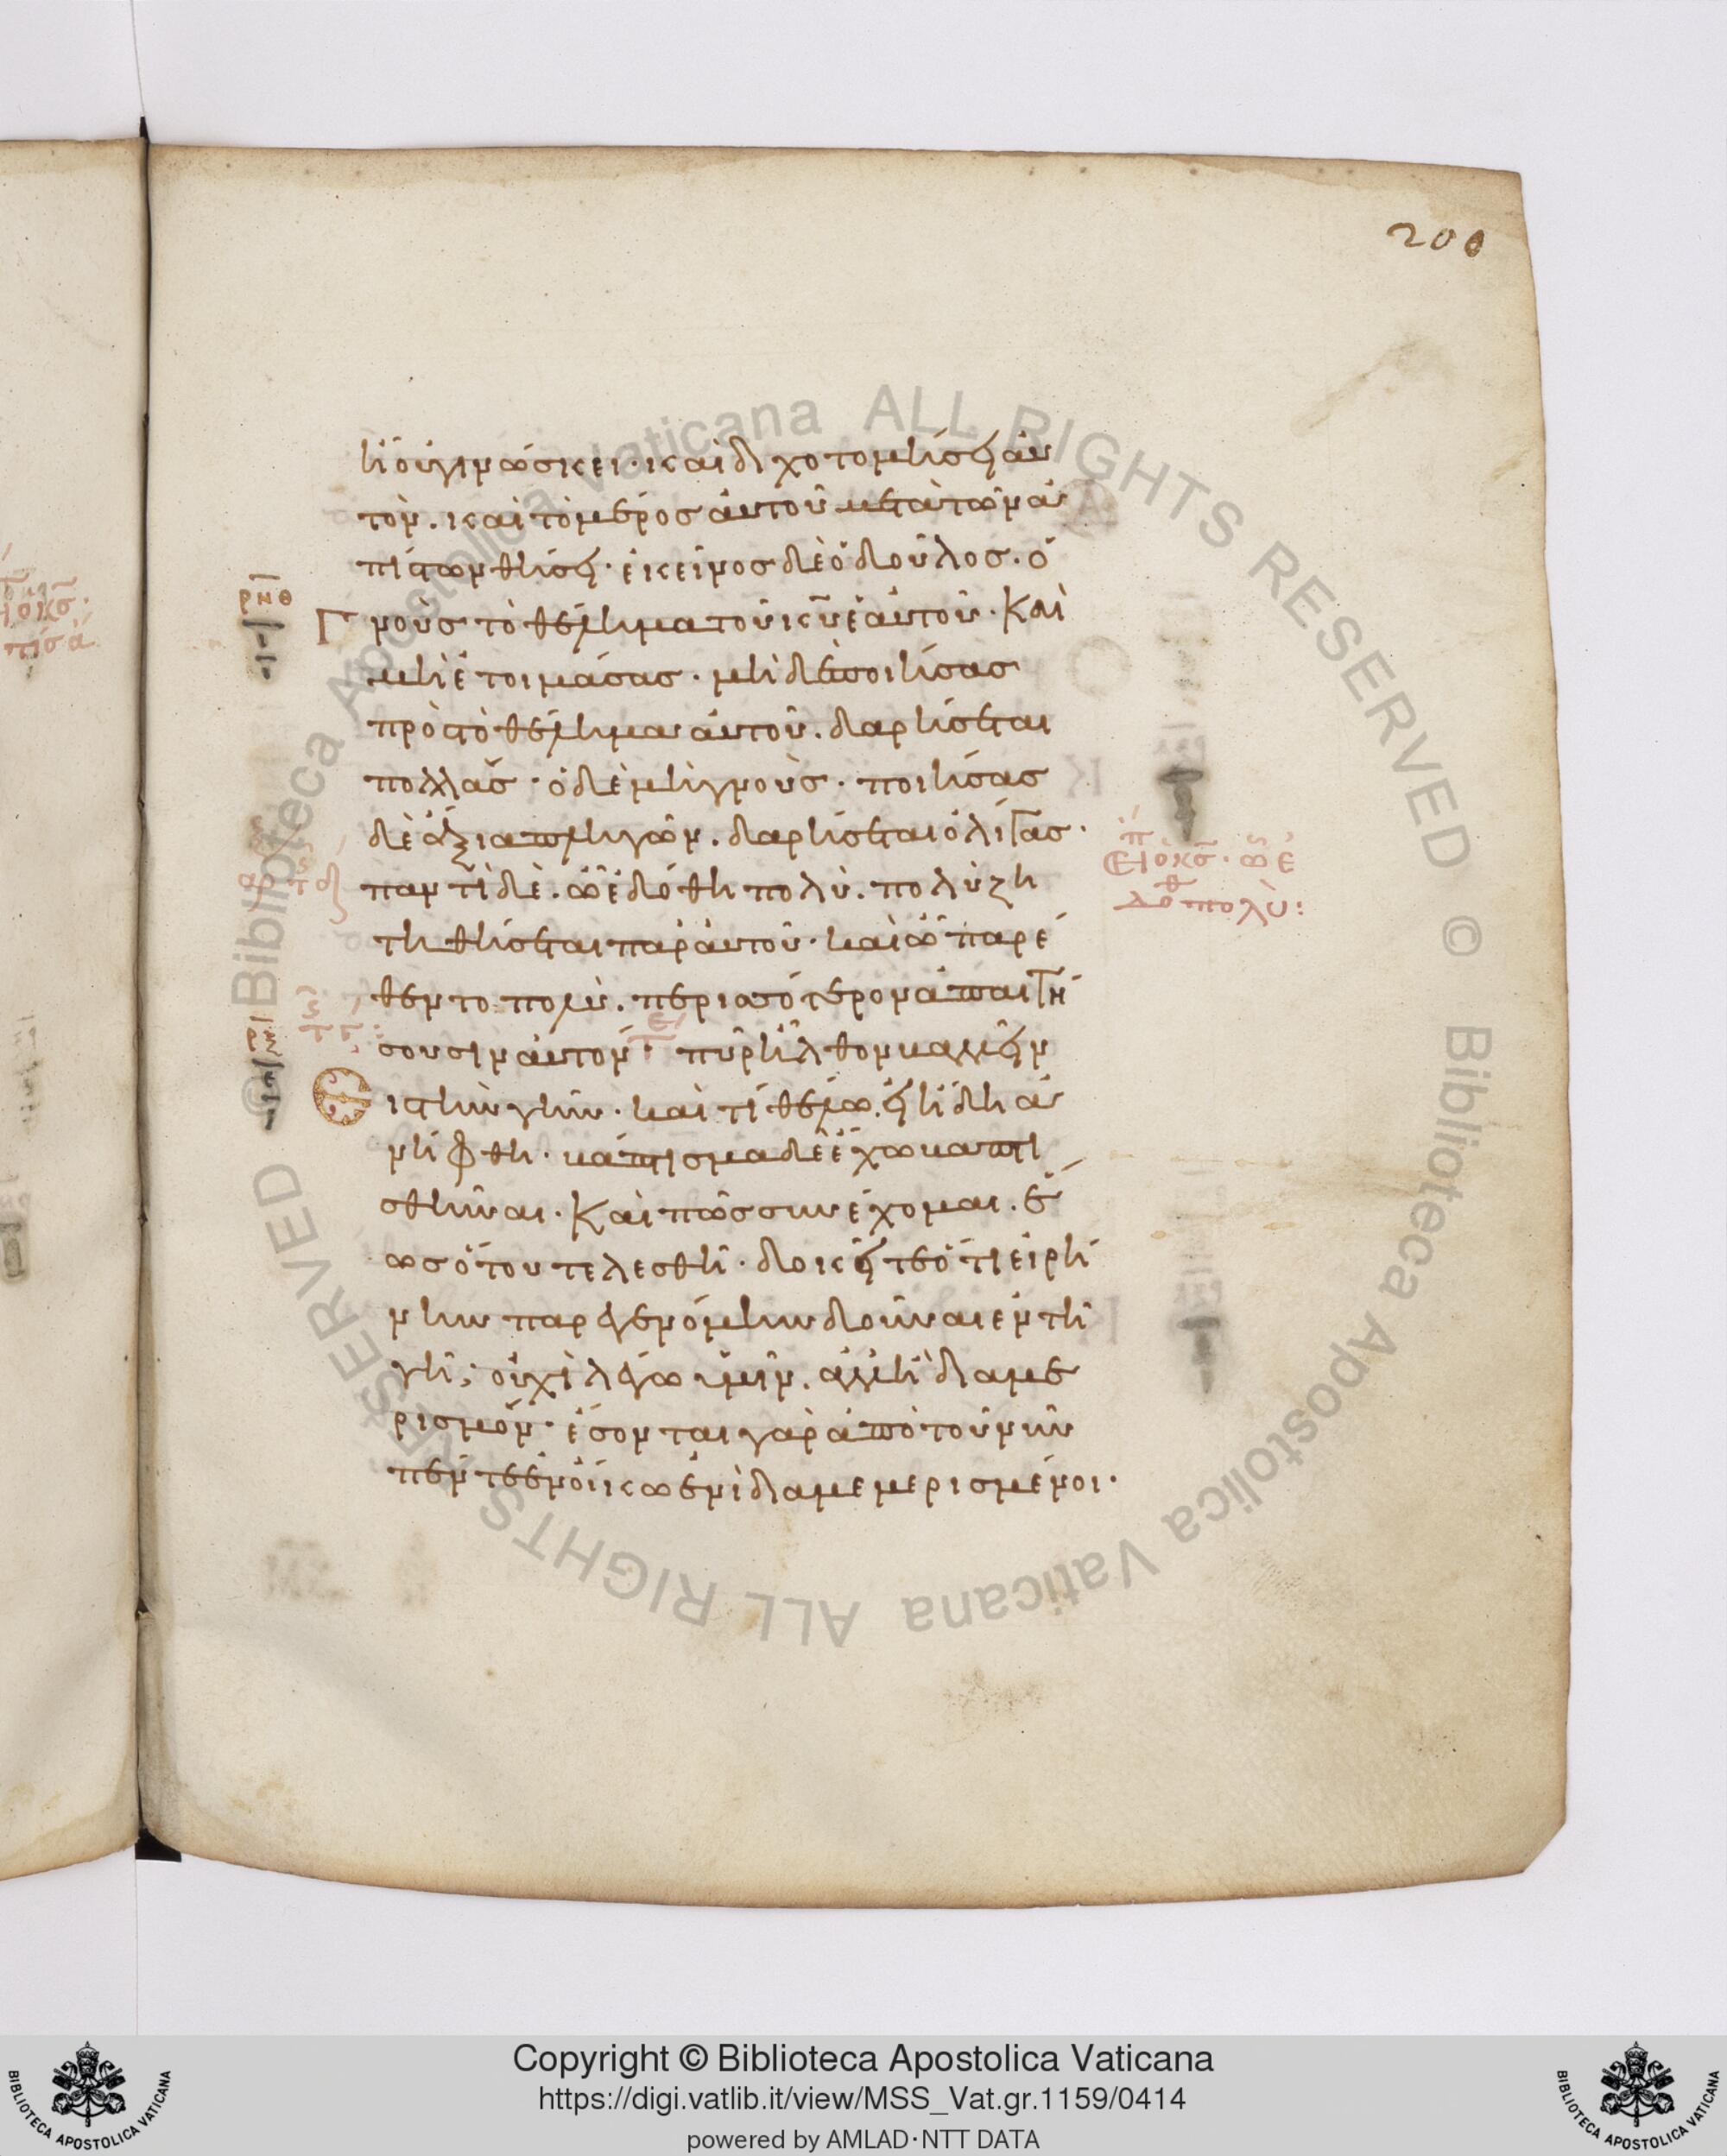 200
ἡ οὐ γινώσκει· καὶ διχοτομήσει αὐ
τὸν. καὶ τὸ μέρος αὐτοῦ μετὰ τῶν ἀ
πίστων θήσει· ἐκεῖνος δὲ ὁ δοῦλος. ὁ
γνοὺς τὸ θέλημα τοῦ κυ ἑαυτοῦ· Καὶ
μὴ ἑτοιμάσας. μηδὲ ποιήσας
πρὸς τὸ θέλημα αὐτοῦ. δαρήσεται
πολλάς· ὁ δὲ μὴ γνοὺς· ποιήσας
δὲ ἄξια πληγῶν. δαρήσεται ὀλίγας·
παντὶ δὲ. ᾧ ἐδόθη πολὺ. πολὺ ζη
τηθήσεται παρ' αὐτοῦ· καὶ ᾧ παρέ
θεντο πολὺ. περισσότερον ἀπαιτή
σουσιν αὐτόν· πῦρ ἦλθον βαλεῖν
εἰς τὴν γῆν· καὶ τί θέλω. εἰ ἤδη ἀ
νήφθη· βάπτισμα δὲ ἔχω βαπτι
σθῆναι· Καὶ πῶς συνέχομαι. ἕ
ως ὅτου τελεσθῆ· δοκεῖτε ὅτι εἰρή
νην παρεγενόμην δοῦναι ἐν τῆ
γῆ; οὐχὶ λέγω ὑμῖν. ἀλλ' ἢ διαμε
ρισμόν· ἔσονται γὰρ ἀπὸ τοῦ νῦν
πέντε ἐν οἴκω ἑνὶ διαμεμερισμένοι·
ρνθ
Copyright © Biblioteca Apostolica Vaticana
https://digi.vatlib.it/view/MSS_Vat.gr.1159/0414
powered by AMLAD·NTT DATA
BIBLIOTECA APOSTOLICA VATICANA
BIBLIOTECA APOSTOLICA VATICANA
© Biblioteca Apostolica Vaticana ALL RIGHTS RESERVED
© Biblioteca Apostolica Vaticana ALL RIGHTS RESERVED